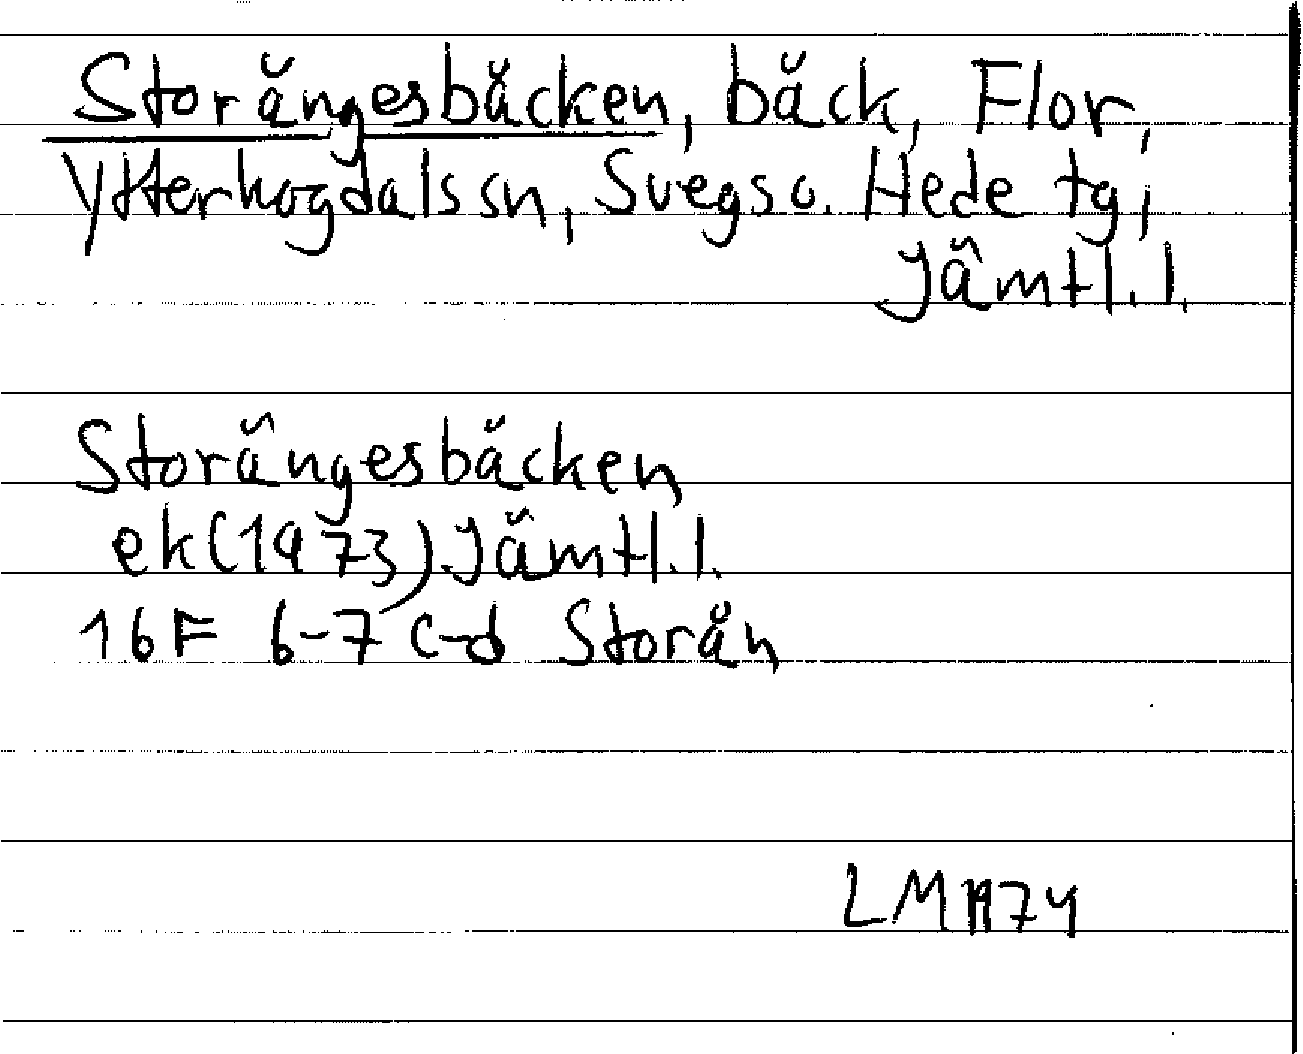 Storängesbäcken, bäck, Flor,
Ytterhogdals sn, Svegs o. Hede tg;
Jämtl. l.
Storängesbäcken
ek (1973) Jämtl. l.
16F 6-7 c-d Storån
LM 1974